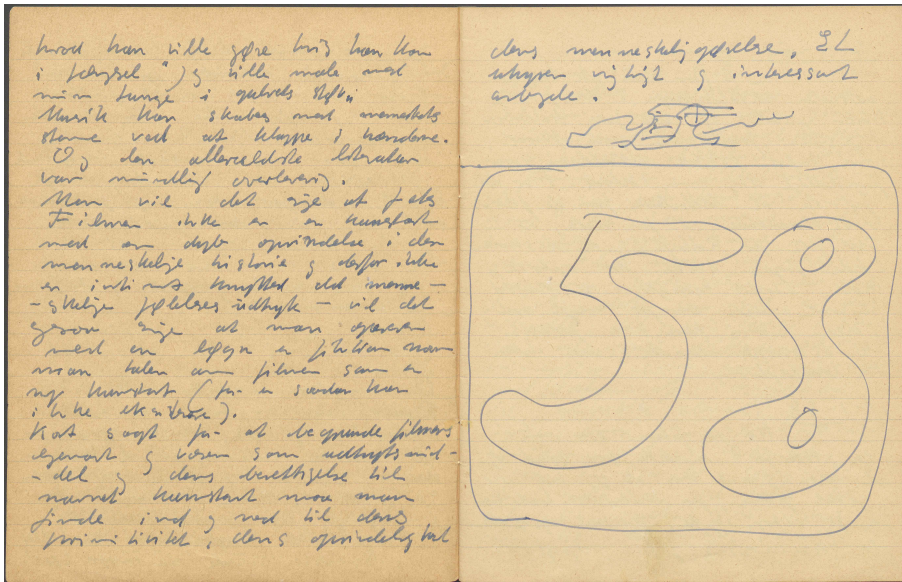 hvad han ville gøre hvis han kom
i fængsel") og ville male med
min tunge i gulvets støv"
Musik kan skabes med menneskets
stemme ved at klappe i hænderne.
Og den allerældste literatur
var mundtlig overlevering.
Men vil det sige at f.eks
Filmen ikke er en kunstart
med en dyb oprindelse i den
menneskelige historie og derfor ikke
er intimt knyttet det menne-
-skelige følelses udtryk - vil det
sige at man opererer
med en løgn en fiktion når
man taler om filmen som en
ny kunstart (for en saadan kan
ikke eksistere).
Kort sagt for at begrunde filmens
egenart og væsen som udtryksmid-
-del og dens berettigelse til
navnet kunstart maa man
finde ind og ned til dens
primitivitet, dens oprindelighed
dens menneskeliggørelse. Et
uhyre vigtigt og interessant
arbejde.
58